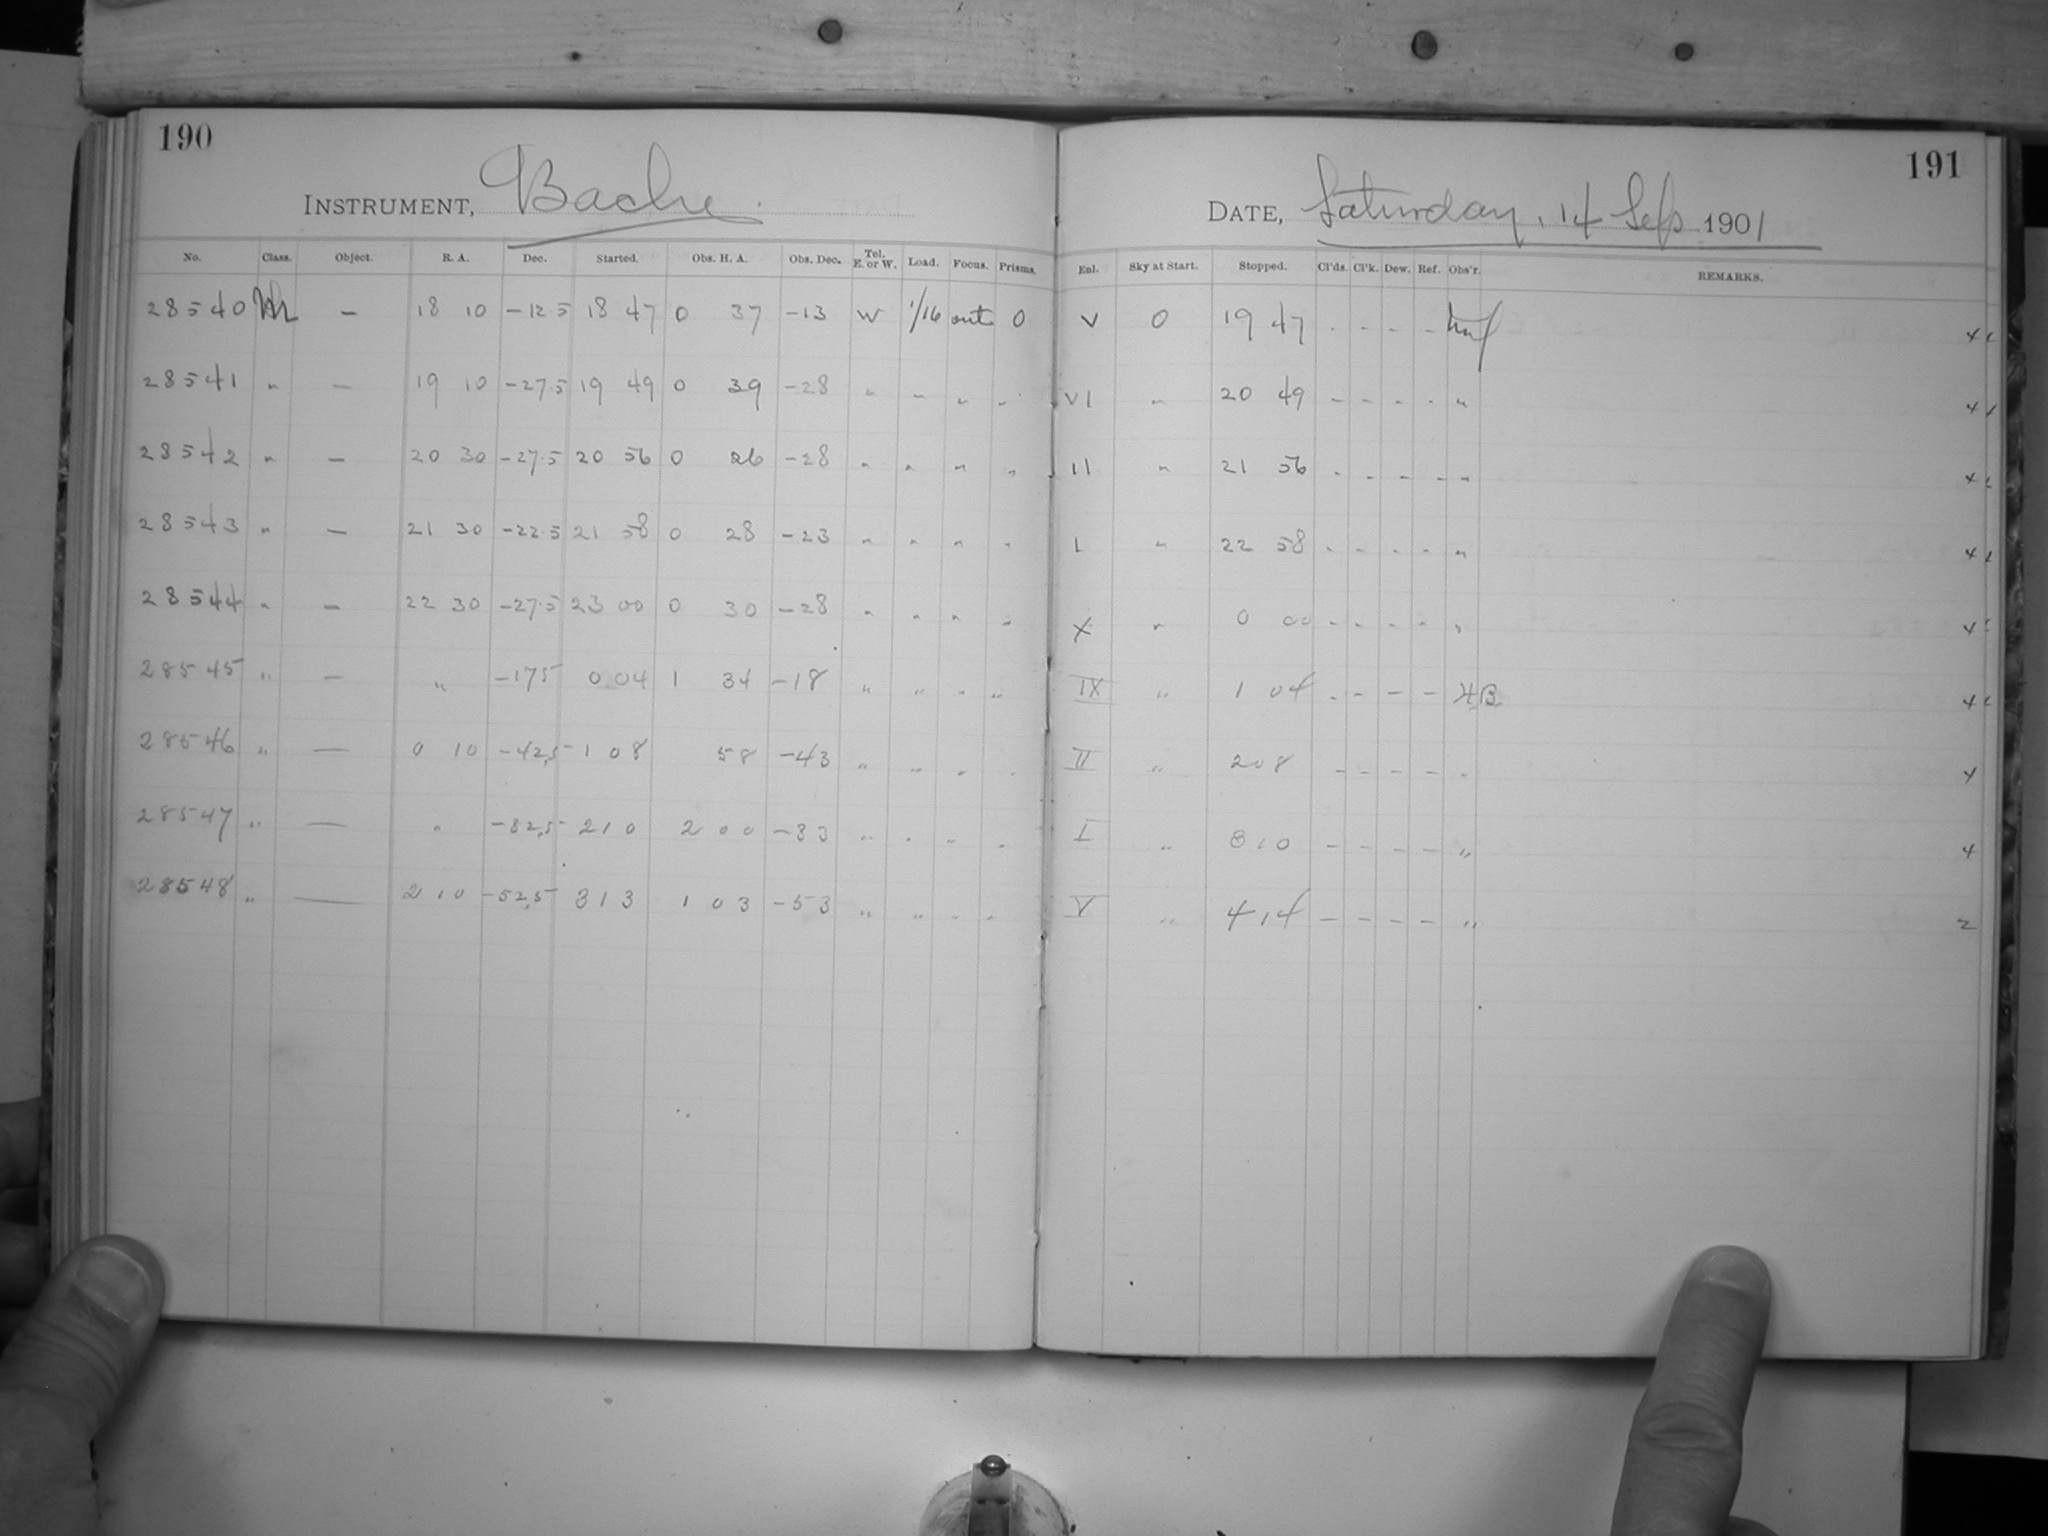 190
INSTRUMENT, Bache.
No. Class. Object. R. A. Dec. Started. Obs. H. A. Obs. Dec. Tel. E. or W. Load. Focus. Prisms.
28540 — 18 10 -12.5 18 47 0 37 -13 W 1/16 out 0
28541 " — 19 10 -27.5 19 49 0 39 -28 " " " "
28542 " — 20 30 -27.5 20 56 0 26 -28 " " " "
28543 " — 21 30 -22.5 21 58 0 28 -23 " " " "
28544 " — 22 30 -27.5 23 00 0 30 -28 " " " "
28545 " — " -175 0 04 1 34 -18 " " " "
28546 " — 0 10 -42,5 1 08 58 -43 " " " "
28547 " — " -32,5 2 10 2 00 -33 " " " "
28548 " — 2 10 -52,5 3 13 1 03 -53 " " " "
191
DATE, Saturday, 14 Sep 1901
Enl. Sky at Start. Stopped. Cl'ds. Cl'k. Dew. Ref. Obs'r. REMARKS.
V 0 19 47 - - - - 4
VI " 20 49 - - - - " 4
II " 21 56 - - - - " 4
I " 22 58 - - - - " 4
X " 0 00 - - - - " 4
IX " 1 04 - - - - H,B. 4
II " 2 08 - - - - " 4
I " 3 10 - - - - " 4
V " 4 14 - - - - " 2